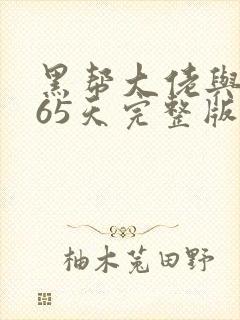 黑帮大佬與
65天完整版
柚木菟田野